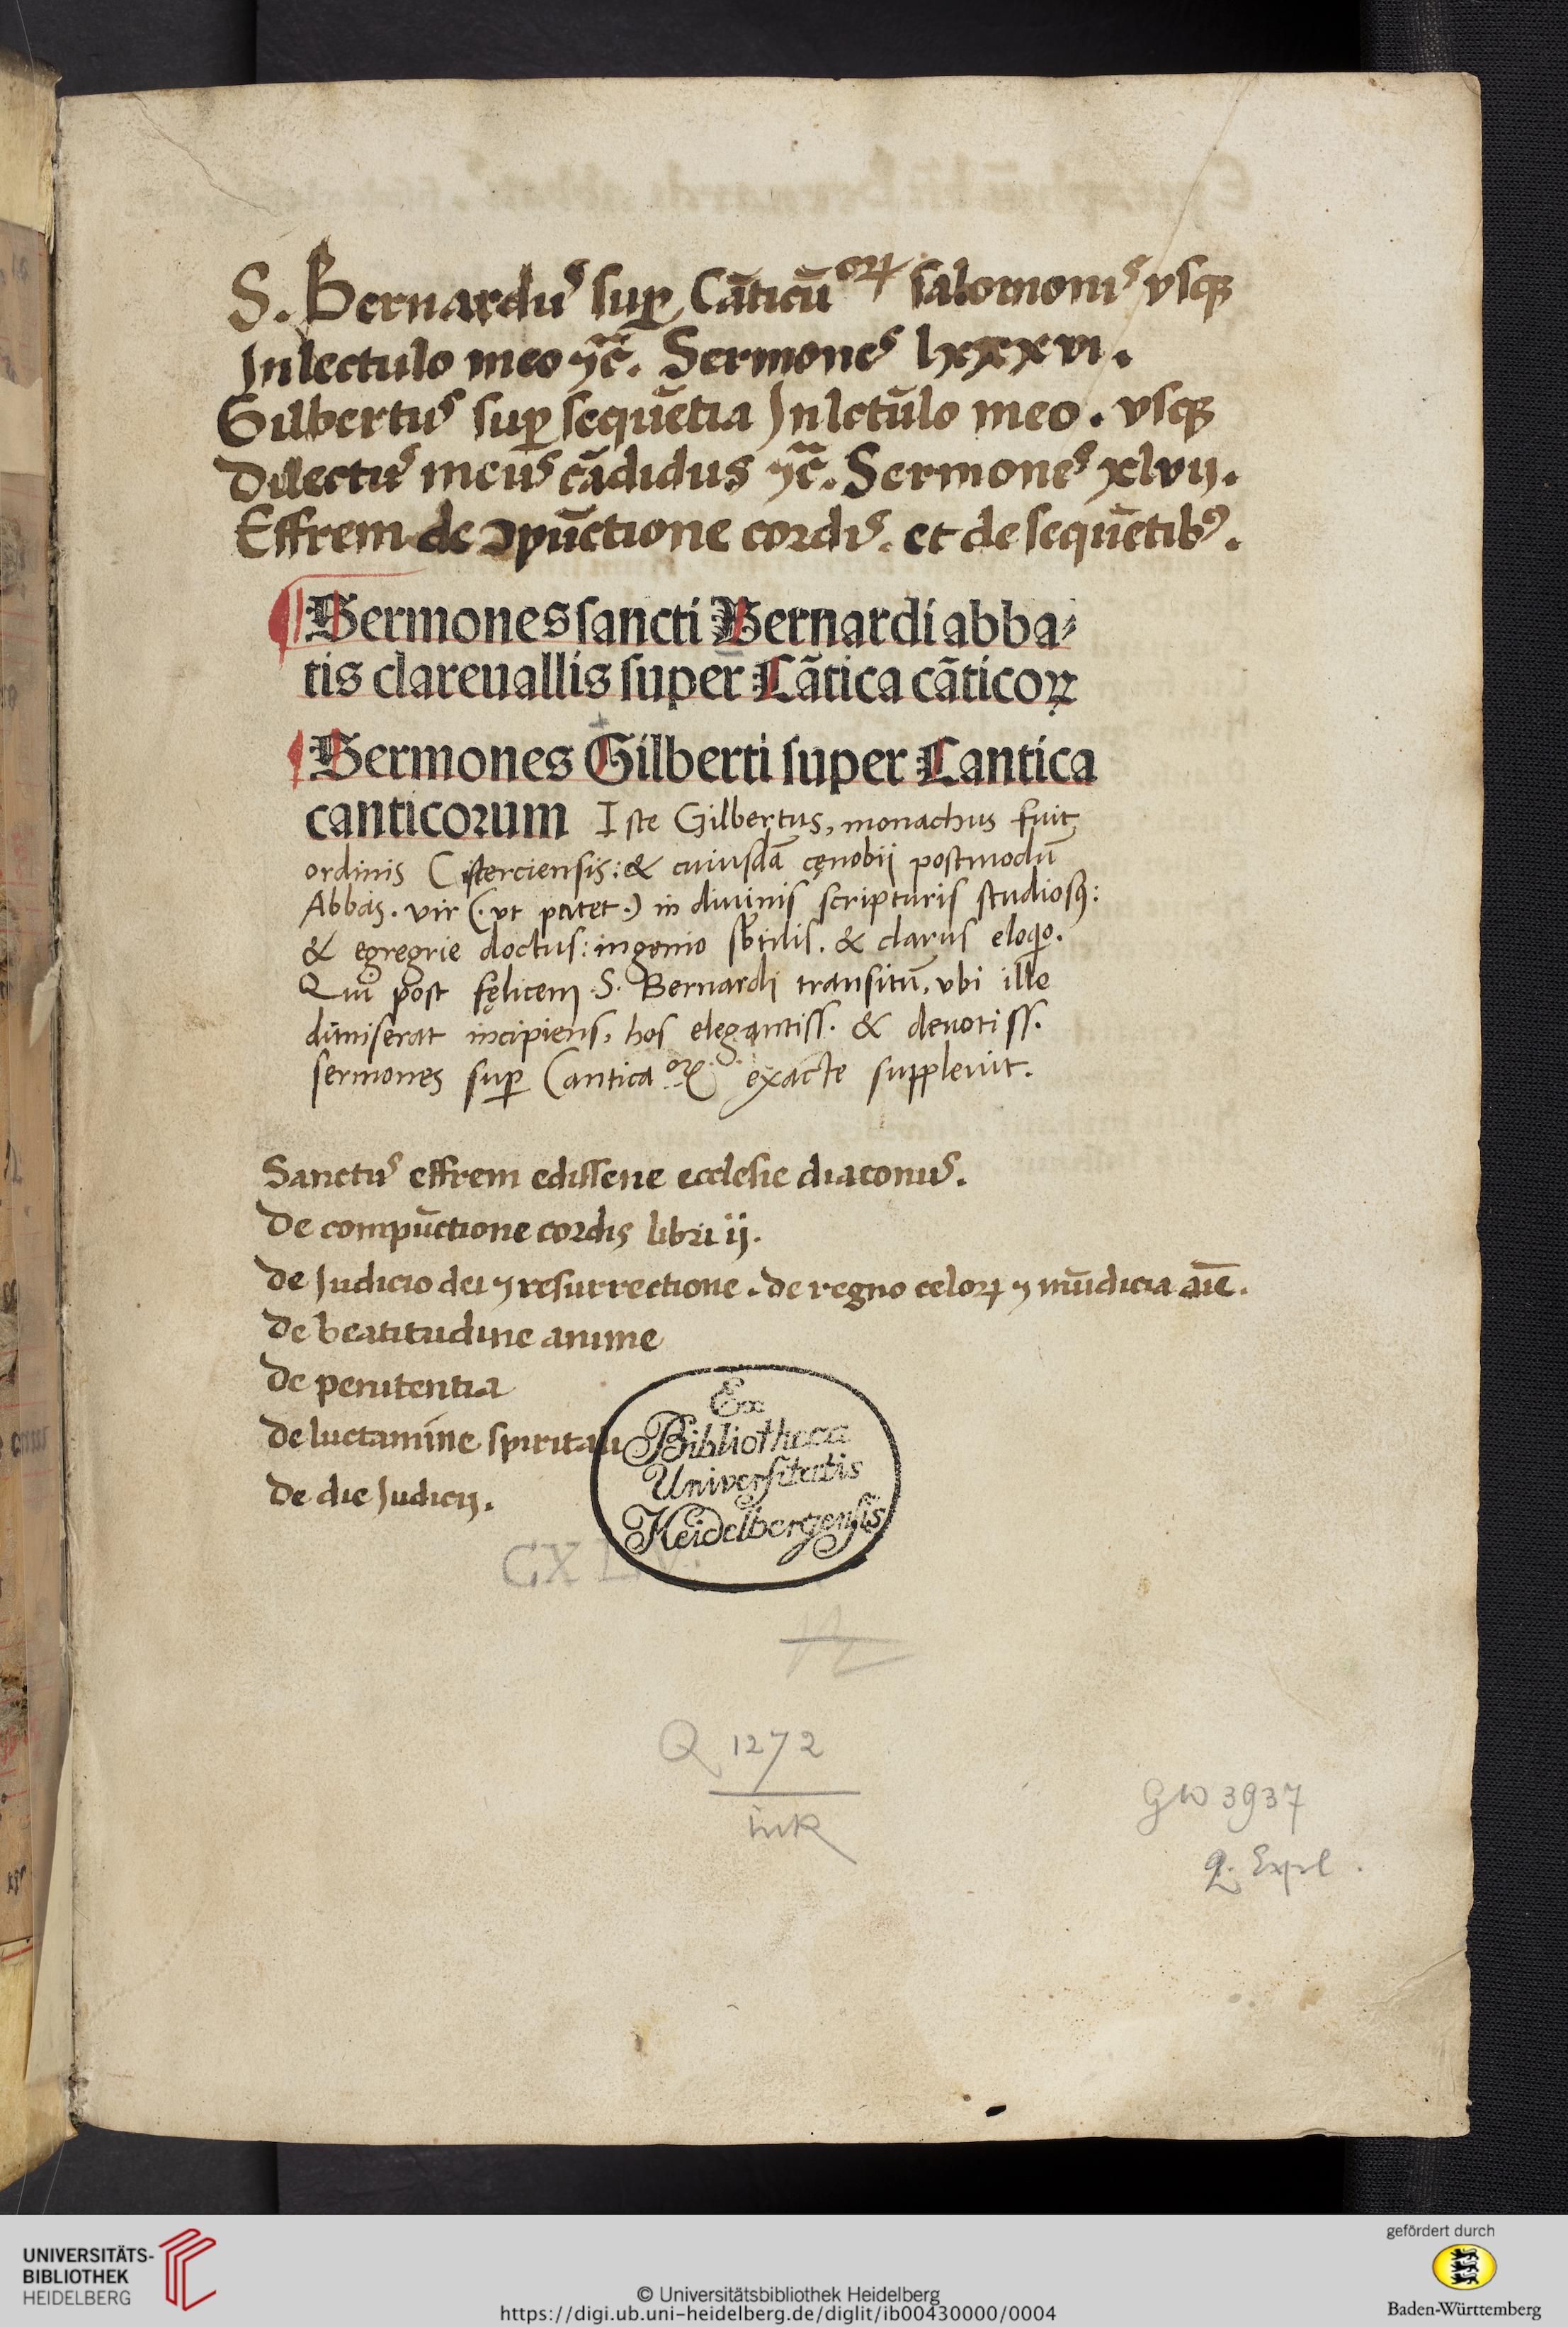 S. Bernardus sup Cāticū orꝝ salomonis vsqꝫ
In lectulo meo ⁊c̄. Sermones lxxxvi.
Gilbertus suꝑ sequētia In lctūlo meo. vsqꝫ
Dilectus meus cādidus ⁊c̄. Sermones xlvij.
Effrem de ↄpūctione cordis. et de sequētibꝰ.
Sermones sancti Bernardi abba⸗
tis clareuallis super Cātica cāticoꝝ
Sermones Gilberti super Cantica
canticorum Iste Gilbertus, monachus fuit
ordinis Cisterciensis: & cuiusdā cęnobij postmodū
Abbas. vir (. vt patet .) in diuinis scripturis studiosꝰ:
& egregrie doctus: ingenio sbtilis. & clarus eloqo.
Qui post fęlicem S. Bernardi transitū, vbi ille
dimiserat incipiens, hos elegantiss. & deuotiss.
sermones suꝑ Cantica oꝝ exacte suppleuit.
Sanctus effrem edissene ecclesie diaconus.
De compūctione cordis libri ij.
de Judicio dei ⁊ resurrectione. de regno celoꝝ ⁊ mūdicia aīe.
De beatitudine anime
De penitentia
De luctamine spiritali
De die Judicij.
Ex
Bibliotheca
Universitatis
Heidelbergensis
CXLIV.
Q 1272
Ink
GW 3937
2. Expl.
UNIVERSITÄTS-
BIBLIOTHEK
HEIDELBERG
gefördert durch
Baden-Württemberg
© Universitätsbibliothek Heidelberg
https://digi.ub.uni-heidelberg.de/diglit/ib00430000/0004